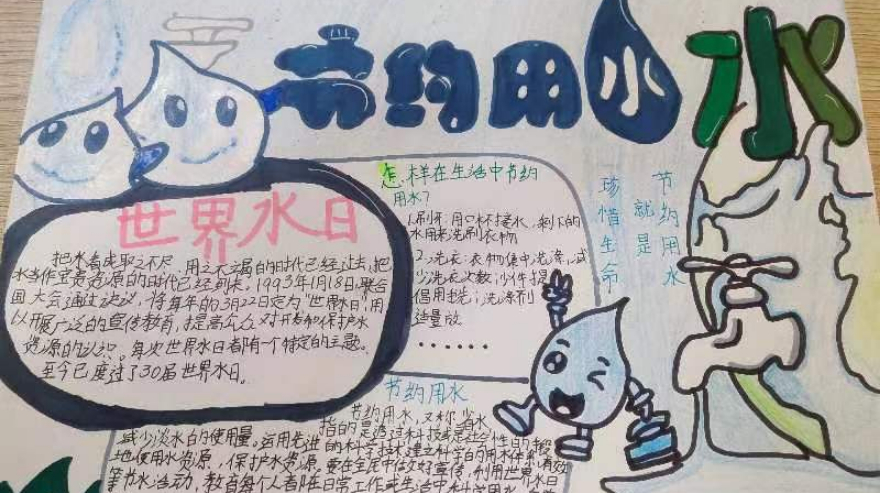 节约用水
水
世界水日
把水看成取之不尽、用之不竭的时代已经过去,把
水当作宝贵资源的时代已经到来。1993年1月18日,联合
国大会通过决议,将每年的3月22日定为"世界水日",用
以开展广泛的宣传教育,提高公众对开发和保护水
资源的认识。每次世界水日都有一个特定的主题。
至今已度过了30届世界水日。
怎样在生活中节约
用水?
1.刷牙:用口杯接水,剩下的
水用来洗刷衣物
2.洗衣:衣物集中洗涤,减
少洗衣次数;少件提
倡用手洗;洗涤剂
适量放
······
节约用水
就是
珍惜生命
节约用水
节约用水,又称节水
指的是通过
减少淡水的使用量。运用先进的科学技术建立科学的用水体系,有效
地使用水资源,保护水资源。要在全民中做好宣传,利用世界水日
等节水活动,教育每个人都在日常工作或生活中科学用水